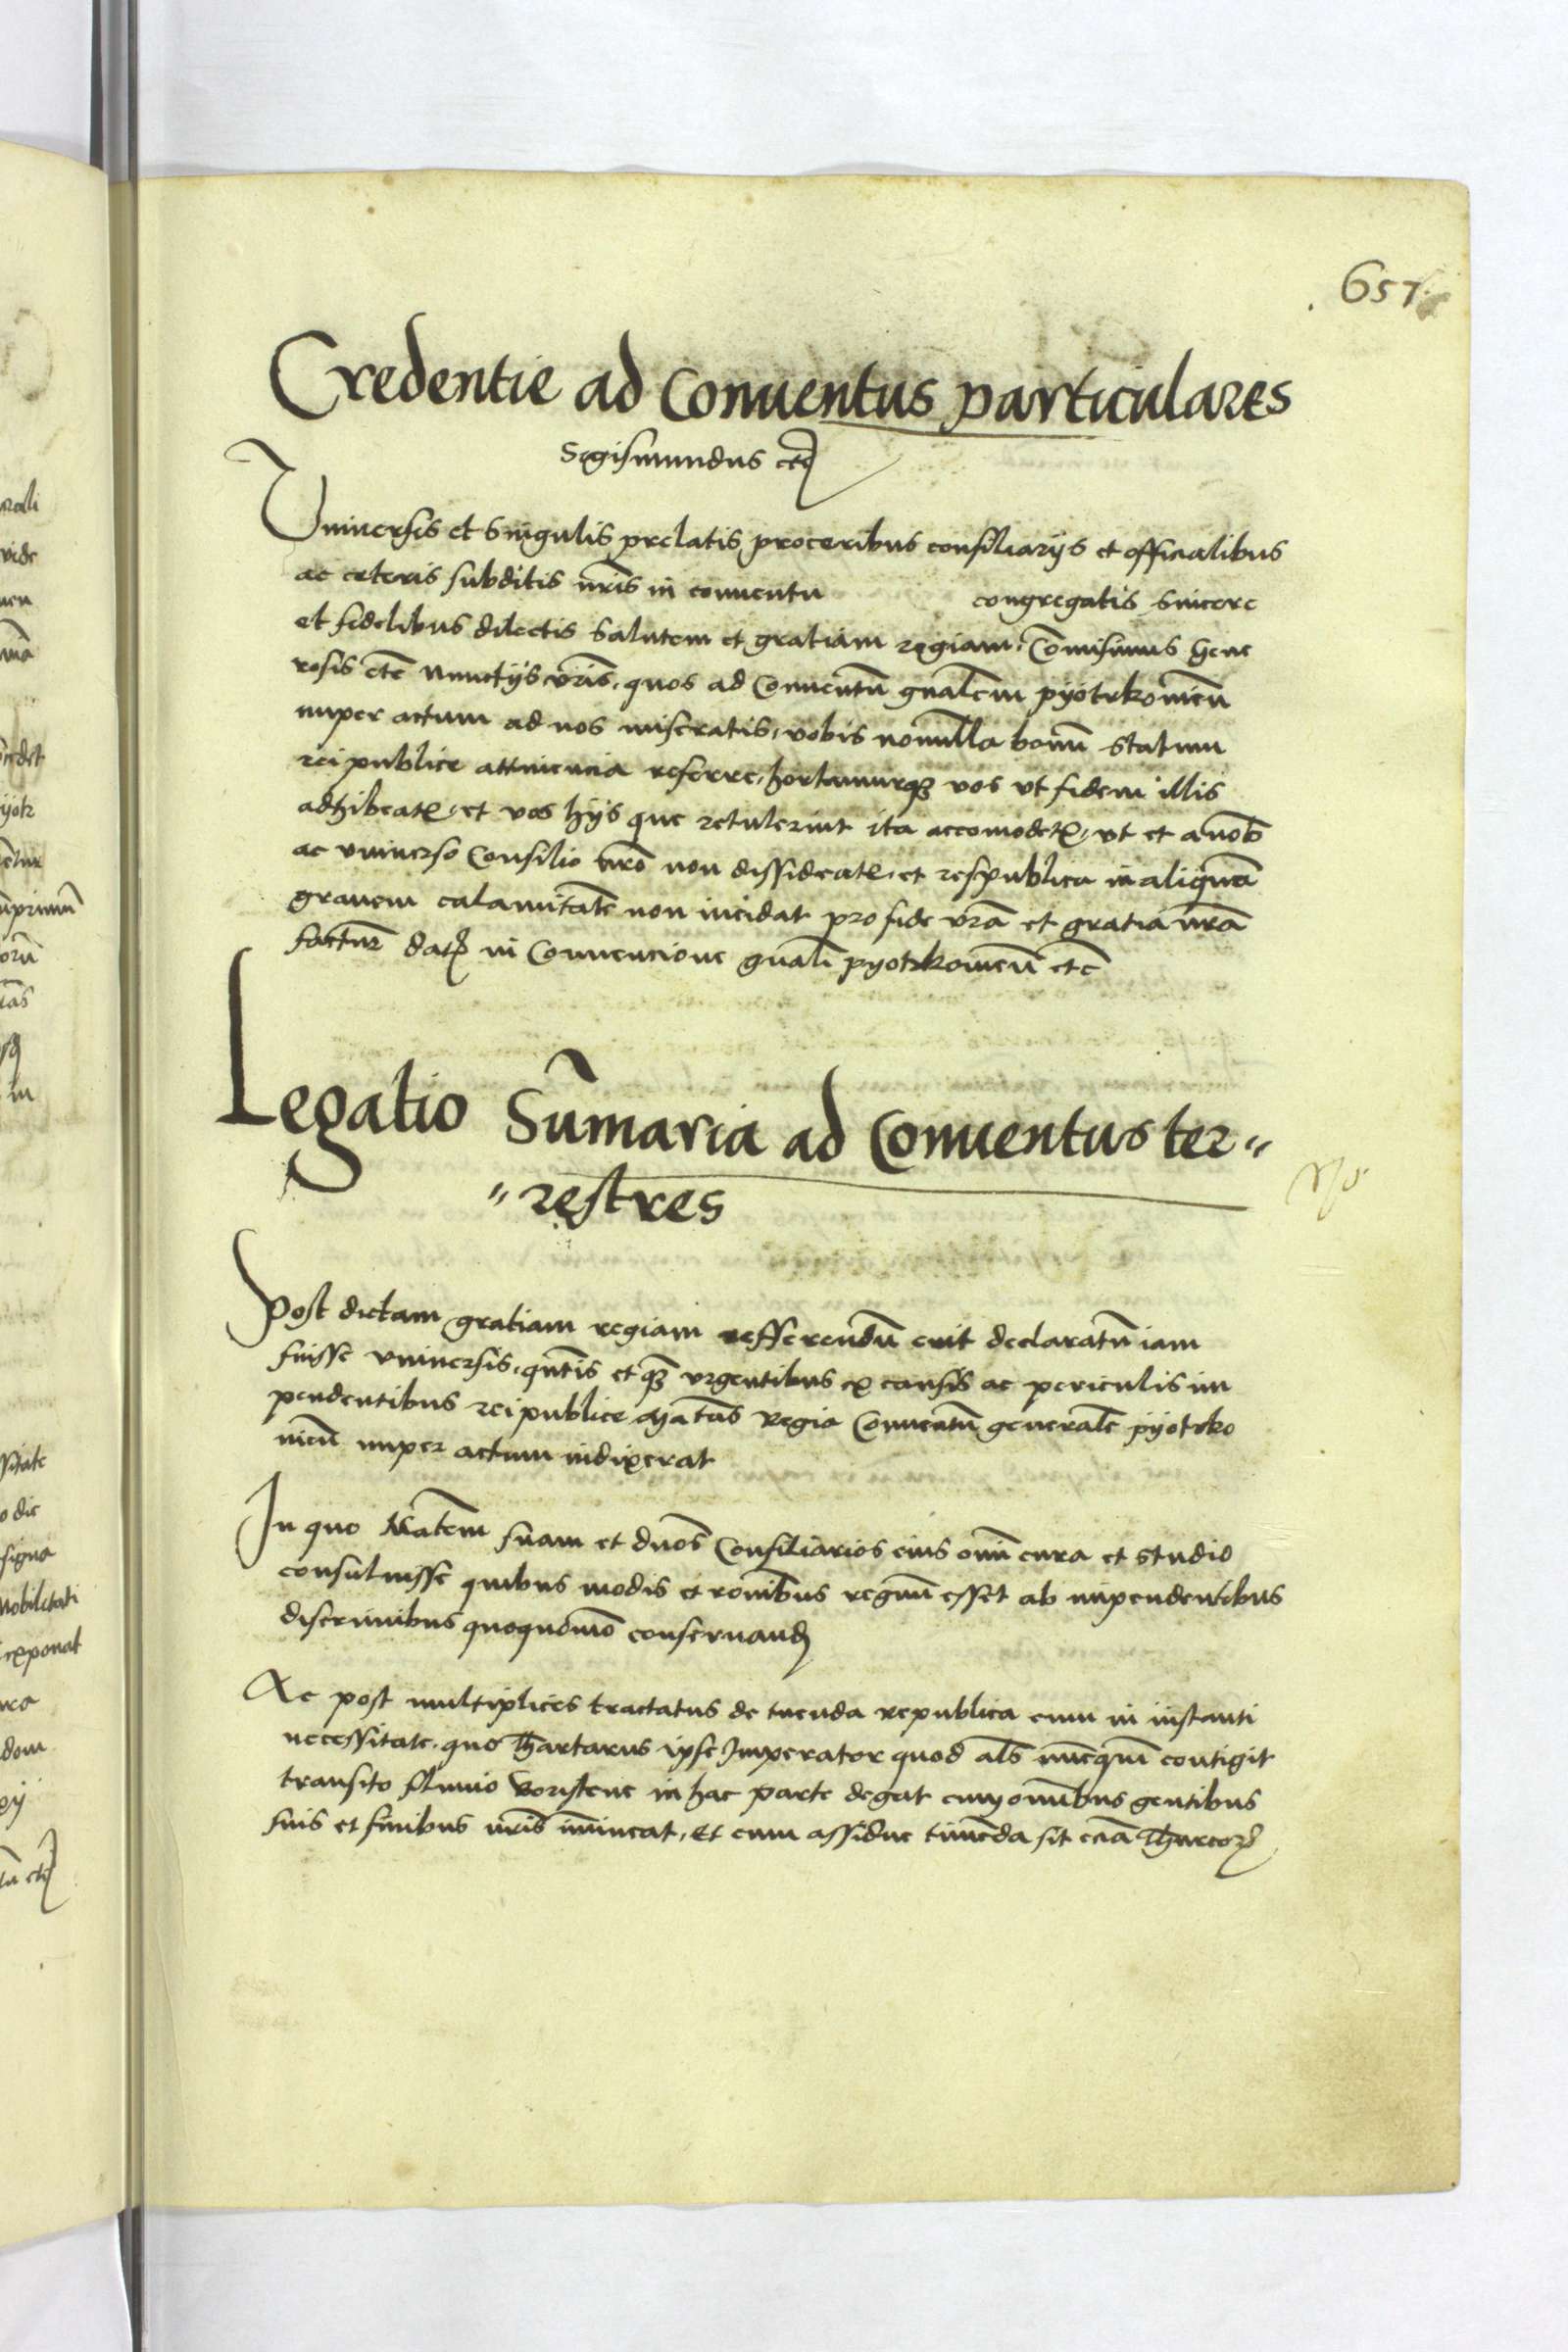 657
Credentie ad Conuentus particulares
Sigismundus etc
Vniuersis et Singulis prelatis proceribus consiliarijs et officialibus
ac ceteris subditis nr̄is in conuentu congregatis sincere
et fidelibus dilectis Salutem et gratiam regiam. Com̄isimus gene
rosis etc̄ Nunctijs vr̄is, quos ad Conuentū gn̄alem pyotrkouien̄
nuper actum ad nos miseratis, vobis nonnulla bonū statum
rei publice attinencia referre, hortamurqꝫ vos vt fidem illis
adhibeatꝭ, et vos hijs que retulerint ita accomodetꝭ, vt et a nob̄
ac vniuerso Consilio nr̄o non dissideatꝭ, et respublica in aliquā
grauem calamitatē non incidat pro fide vr̄a et gratia nr̄a
facturꝭ datꝭ in Conuencione gn̄ali pyotrkouien̄ etc̄
Legatio Sum̄aria ad Conuentus ter〃
〃restres
Post dictam gratiam regiam refferendū erit declaratū iam
fuisse vniuersis, qn̄tis et qꝫ vrgentibus ex causis ac periculis im
pendentibus rei publice Mat̄as Regia Conuentū generalē pyotrko
uien̄ nuper actum indixerat
In quo Mat̄em suam et dn̄os Consiliarios eius om̄i cura et studio
consuluisse quibus modis et ron̄ibus regnū esset ab impendentibus
discriminibus quoquomō conseruandꝭ
Ac post multiplices tractatus de tuenda republica cum in instanti
necessitate, quo Thartarus ipse Imperator quod al̄s nūcqm̄ contigit
transito fluuio Boristene in hac parte degat cum om̄ibus gentibus
suis et finibus nr̄is im̄ineat, Et cum assidue timēda sit eciā Thurcorꝭ